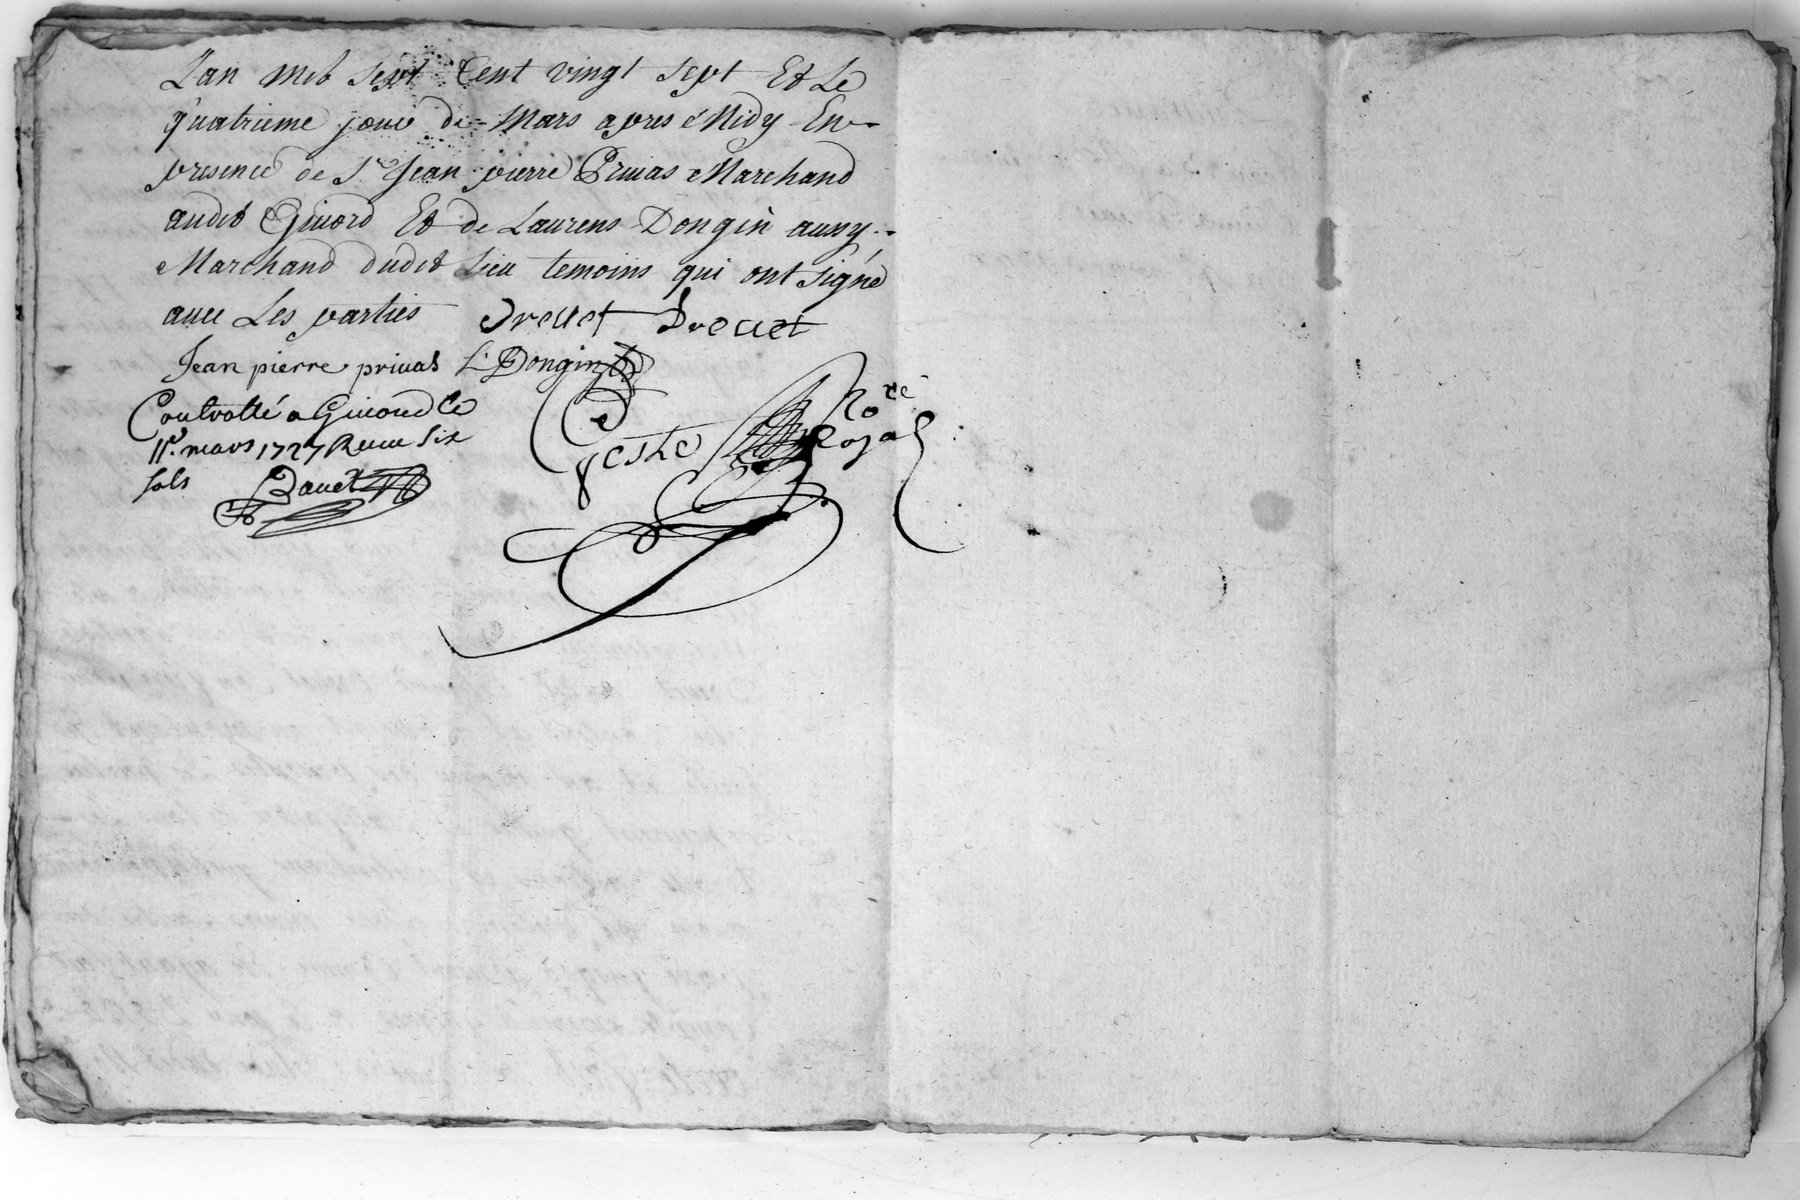 L'an mil sept Cent vingt sept Et Le
quatrieme jour de Mars apres Midy En
presence de Sr Jean pierre Priuas Marchand
audit Giuord Et de Laurens Dongin aussy
Marchand dudit Lieu temoins qui ont signé
auec Les parties Dreuet Dreuet
Jean pierre priuas L Dongin
Controllé a Giuord Le
11e. mars 1727 Receu Six
sols Bauet
Teste Nore
Royal